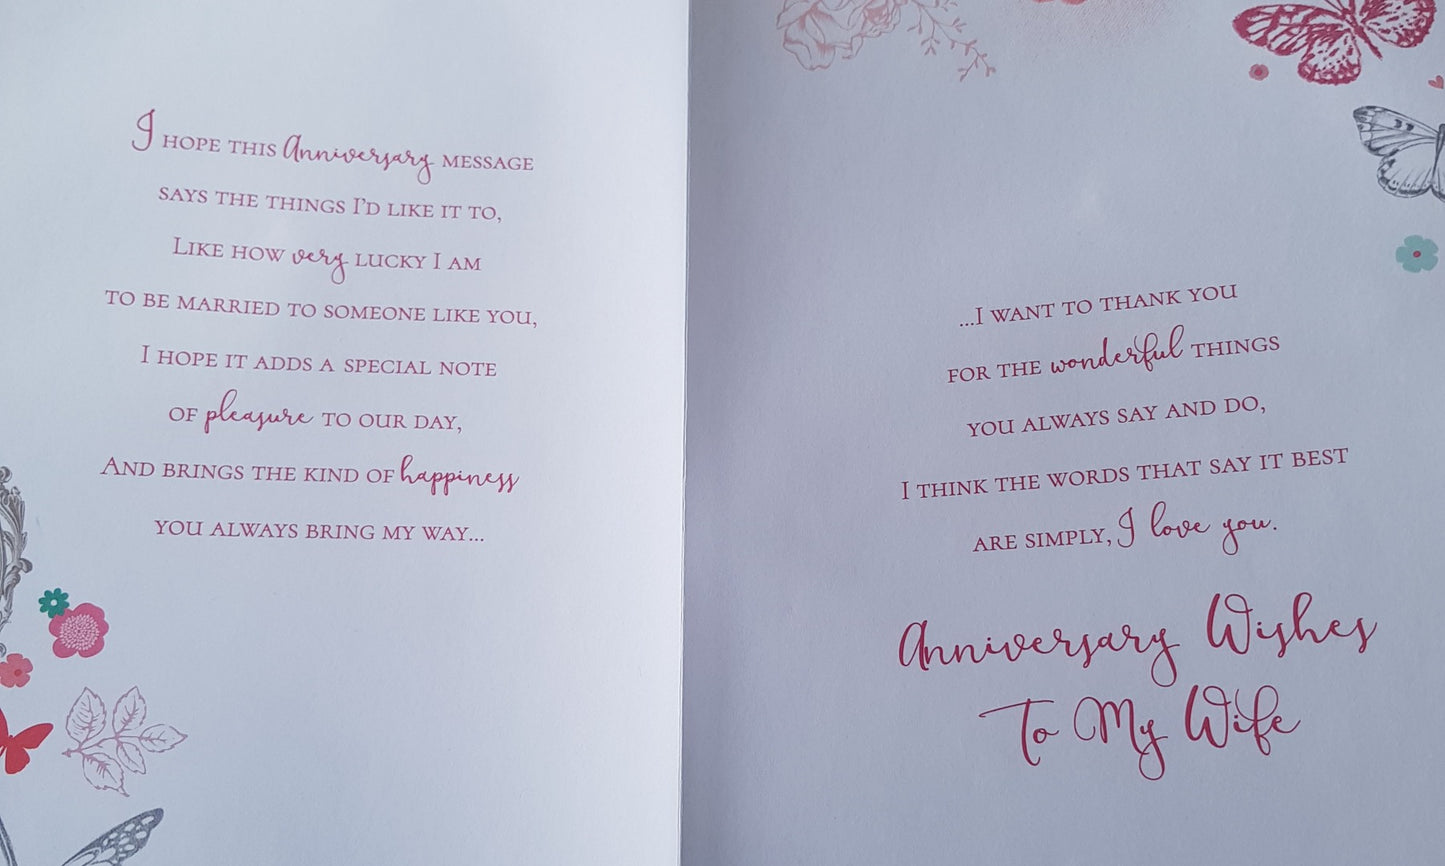 I HOPE THIS Anniversary MESSAGE
SAYS THE THINGS I'D LIKE IT TO,
LIKE HOW very LUCKY I AM
TO BE MARRIED TO SOMEONE LIKE YOU,
I HOPE IT ADDS A SPECIAL NOTE
OF pleasure TO OUR DAY,
AND BRINGS THE KIND OF happiness
YOU ALWAYS BRING MY WAY...
...I WANT TO THANK YOU
FOR THE wonderful THINGS
YOU ALWAYS SAY AND DO,
I THINK THE WORDS THAT SAY IT BEST
ARE SIMPLY, I love you.
Anniversary Wishes
To My Wife